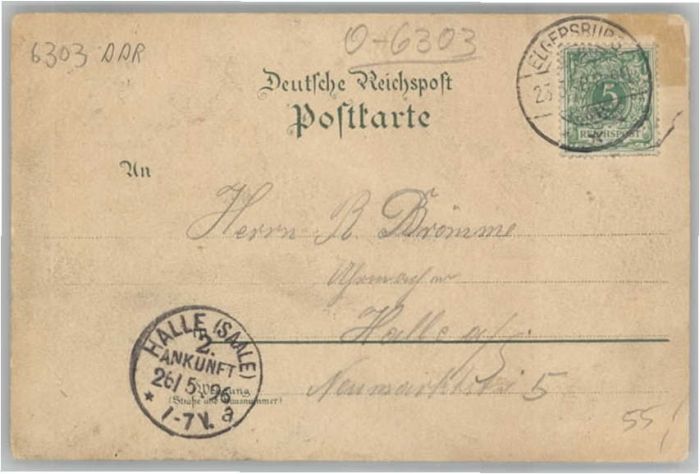 6303 DDR
O-6303
ELGERSBURG
5
REICHSPOST
Deutsche Reichspost
Postkarte
An
Herrn R. Brömme
Uhrmacher
Halle a/S
Neumarktstr 5
HALLE (SAALE)
2.
ANKUNFT
26/5 96
1-7V. a
Wohnung
(Straße und Hausnummer)
55